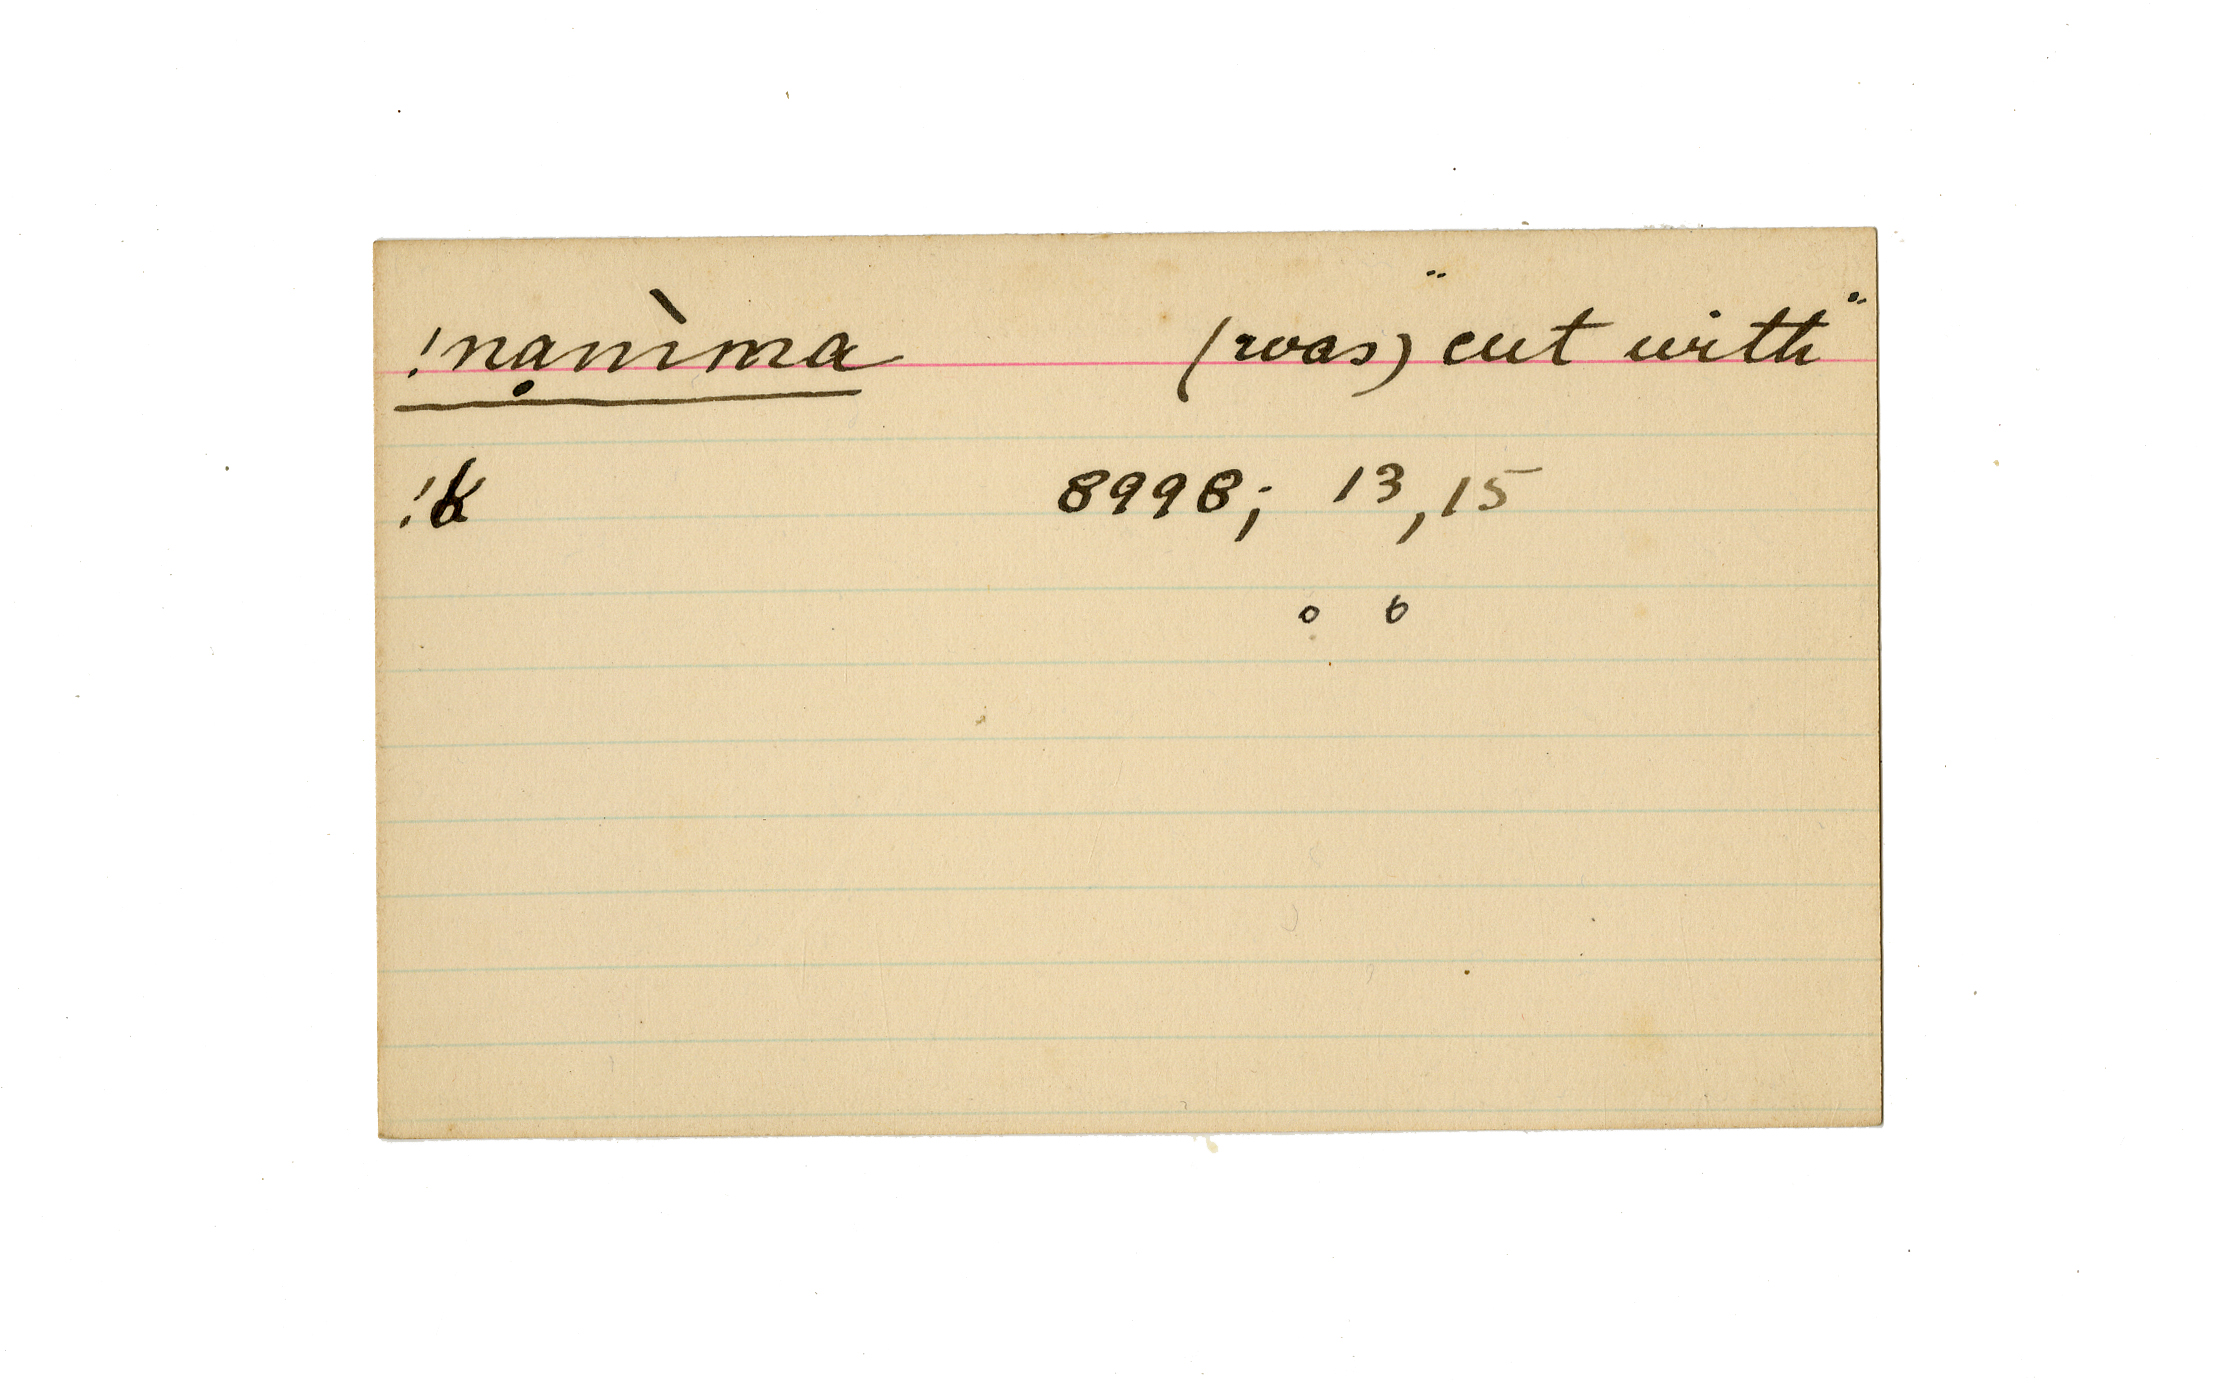 !nạm̀ma (was) "cut with"
!k 8998; 13, 15
o 6